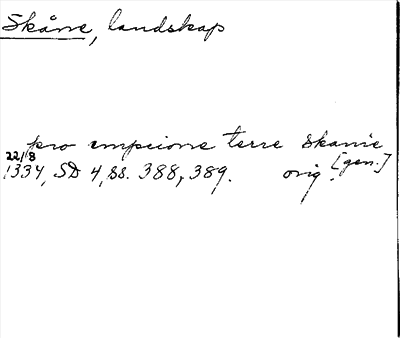 Skåne, landskap
pro empcione terre Skanie
[gen.]
22/8
1334, SD 4, ss. 388, 389. orig.